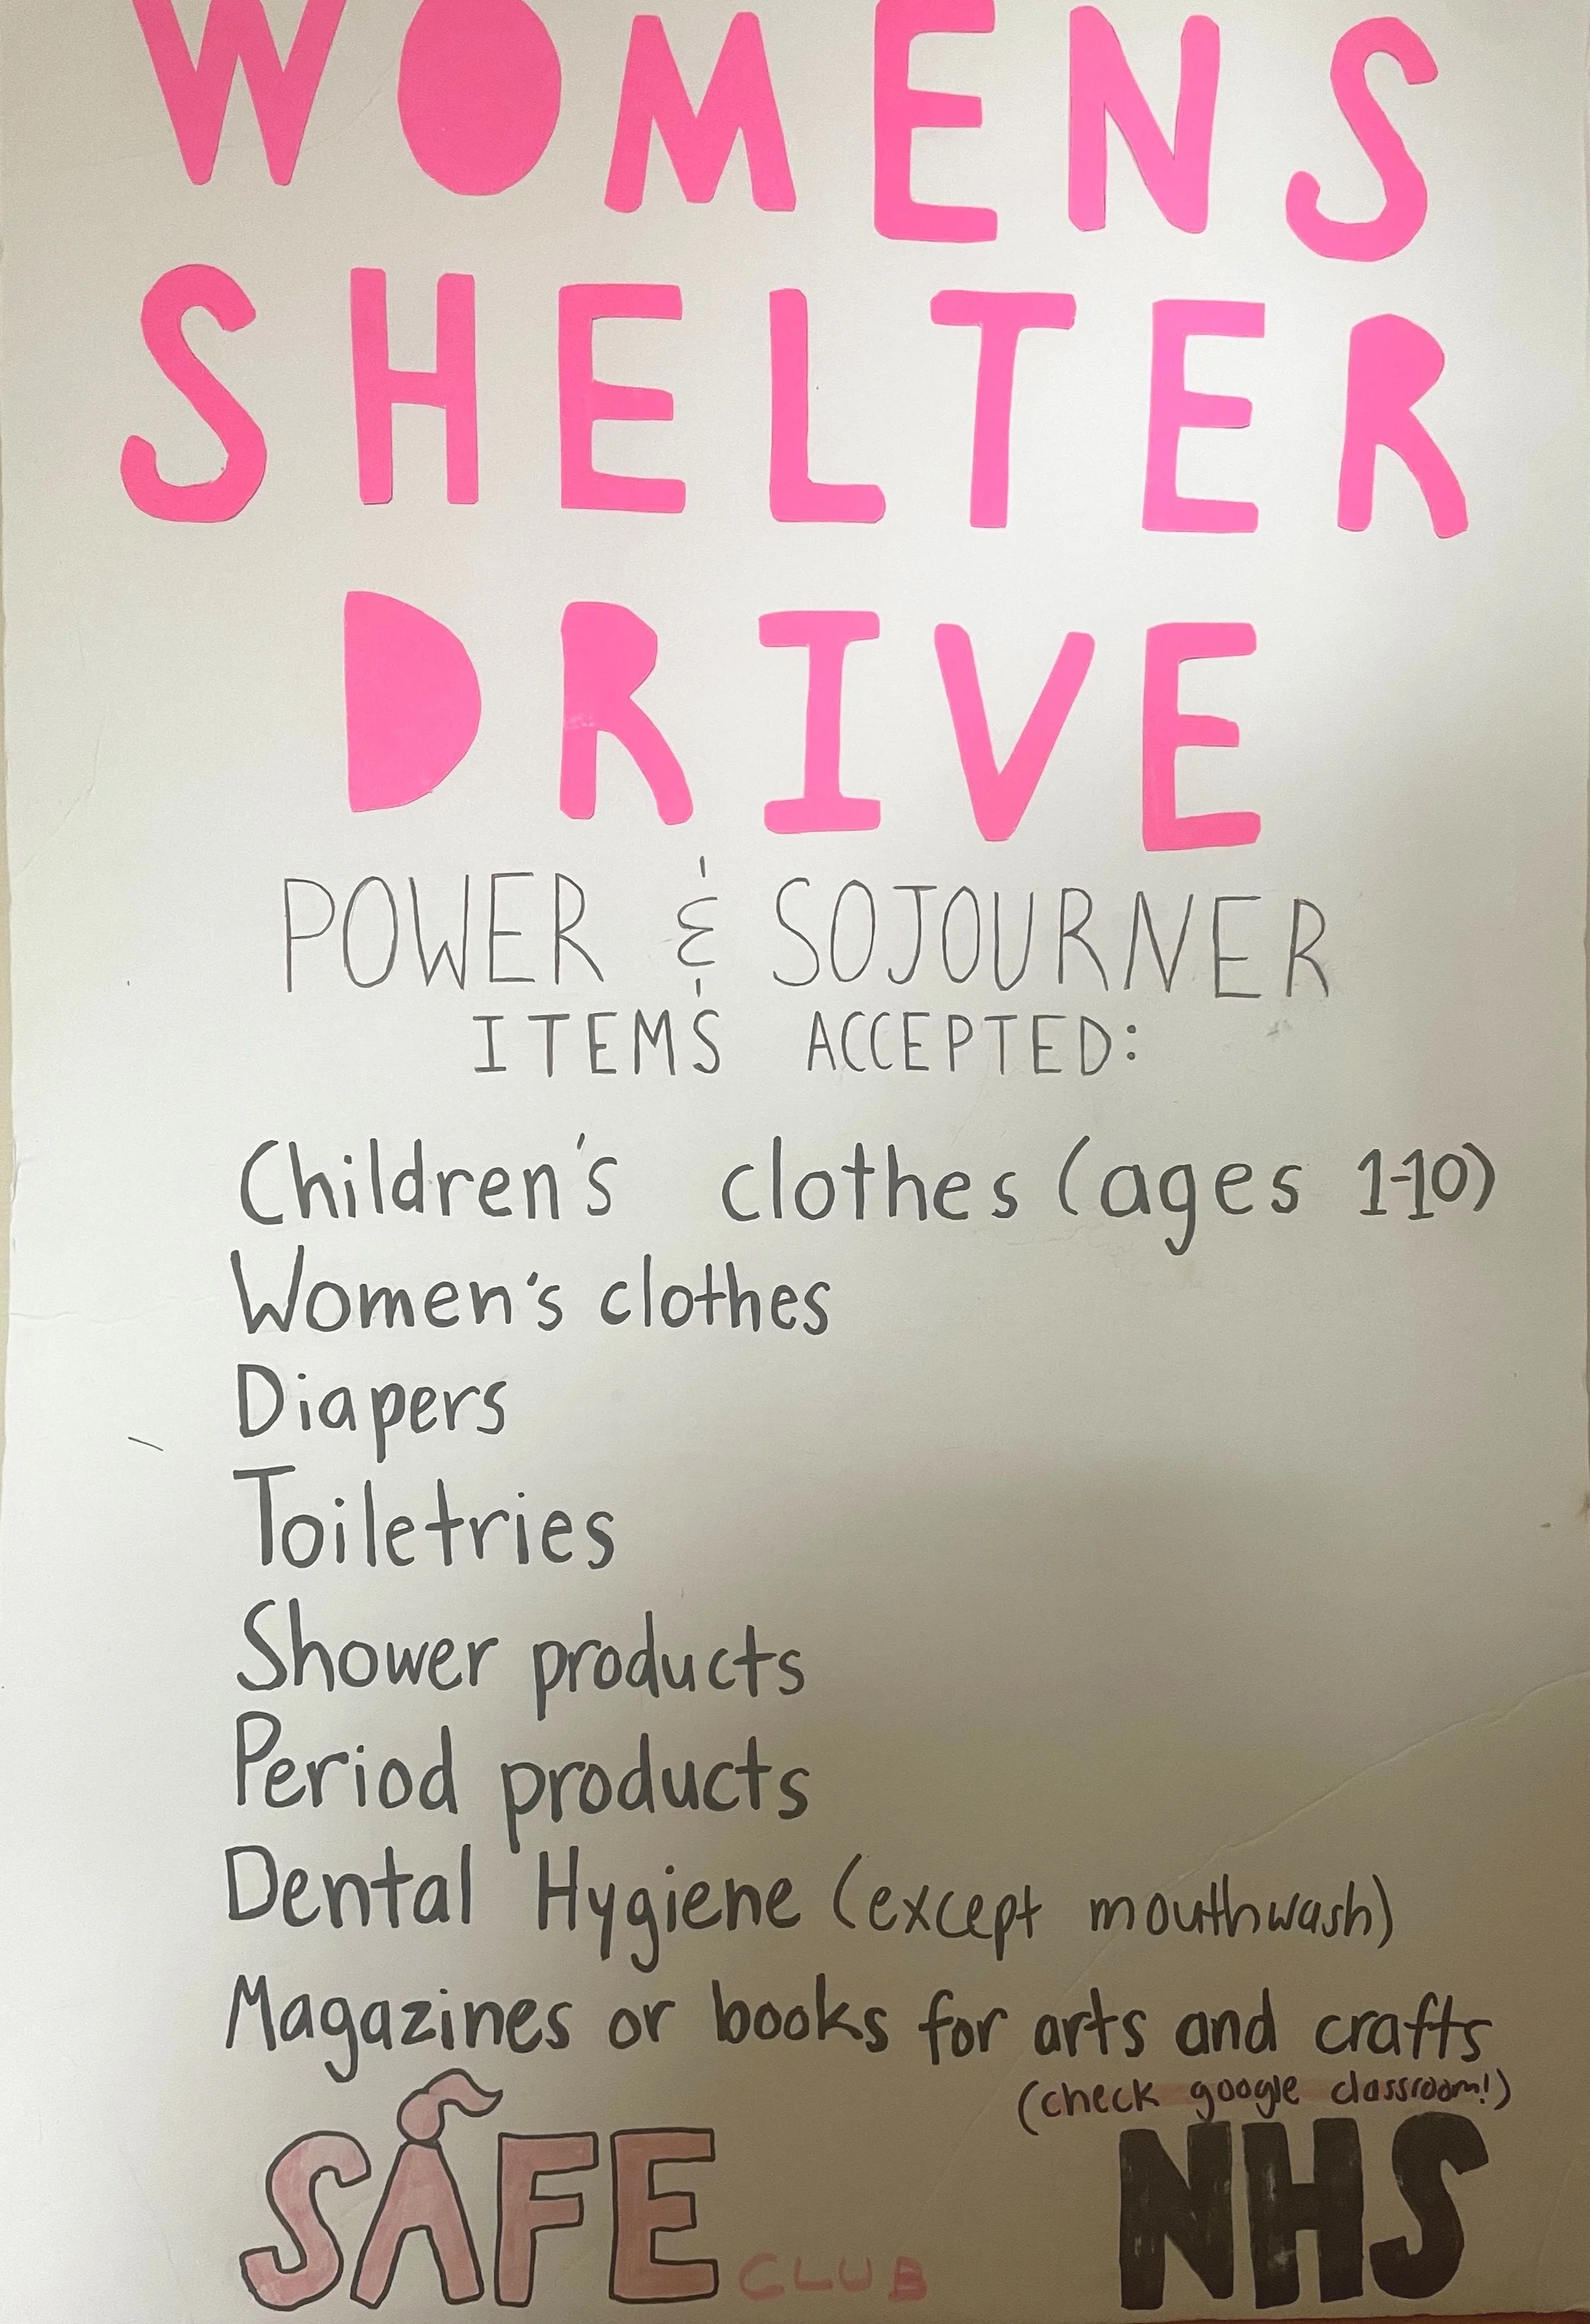 WOMENS
SHELTER
DRIVE
POWER & SOJOURNER
ITEMS ACCEPTED:
Children's clothes (ages 1-10)
Women's clothes
Diapers
Toiletries
Shower products
Period products
Dental Hygiene (except mouthwash)
Magazines or books for arts and crafts
(check google classroom!)
SAFE CLUB
NHS